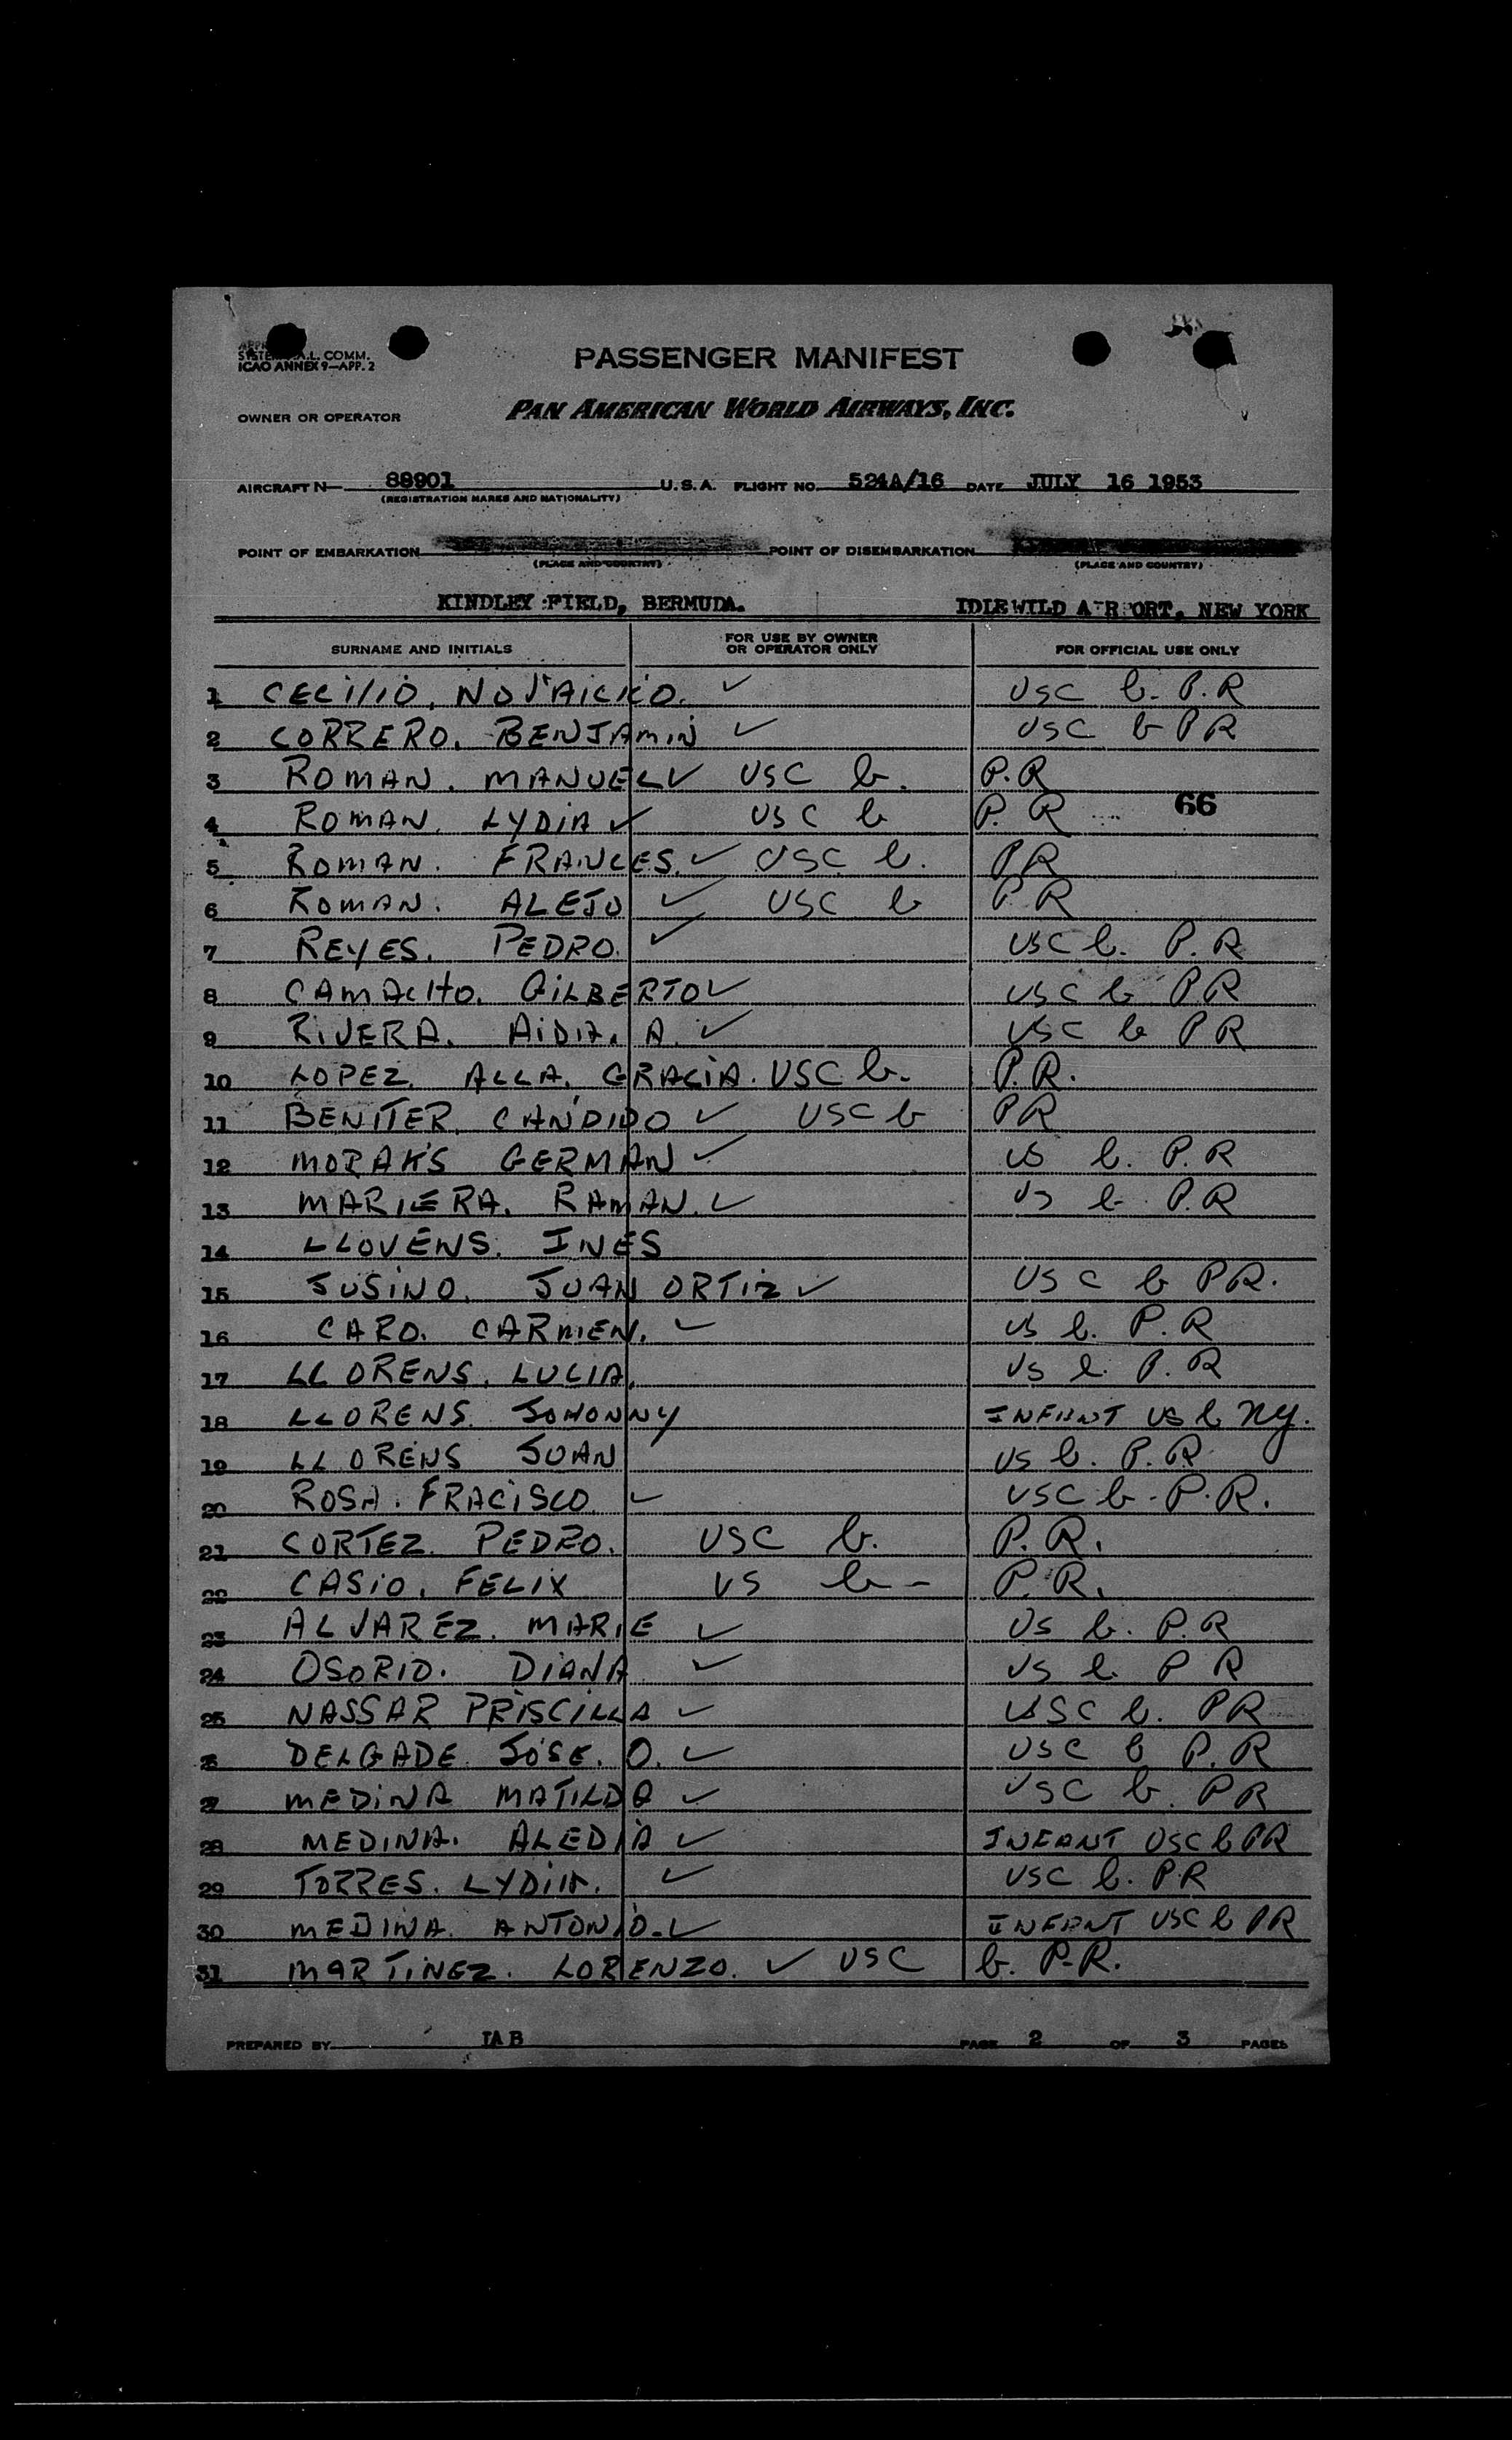 SYSTE A.L. COMM.
ICAO ANNEX 9—APP. 2
PASSENGER MANIFEST
OWNER OR OPERATOR PAN AMERICAN WORLD AIRWAYS, INC.
AIRCRAFT N— 88901 U.S.A. FLIGHT NO. 524A/16 DATE JULY 16 1953
(REGISTRATION MARKS AND NATIONALITY)
POINT OF EMBARKATION POINT OF DISEMBARKATION
(PLACE AND COUNTRY) (PLACE AND COUNTRY)
KINDLEY FIELD, BERMUDA. IDLEWILD A RPORT, NEW YORK
SURNAME AND INITIALS FOR USE BY OWNER OR OPERATOR ONLY FOR OFFICIAL USE ONLY
1 CECILIO. ✓ USC b. P.R
2 CORRERO. BENJAMIN ✓ USC b PR
3 ROMAN. MANUEL ✓ USC b. P.R
66
4 ROMAN. LYDIA ✓ USC b P. R
5 ROMAN. FRANCES. ✓ USC b. PR
6 ROMAN. ALEJO ✓ USC b P R
7 REYES. PEDRO. ✓ USC b. P.R
8 CAMACHO. GILBERTO ✓ USC b PR
9 RIVERA. AIDIA. A. ✓ USC b PR
10 LOPEZ. ALLA. GRACIA. USC b. P.R.
11 BENITER. CANDIDO ✓ USC b PR
12 MORAKS GERMAN ✓ US b. P.R
13 MARIERA. RAMAN. ✓ US b P.R
14 LLOVENS. INES
15 JUSINO. JUAN ORTIZ ✓ USC b PR.
16 CARO. CARMEN. ✓ US b. P.R
17 LLORENS. LUCIA. US b. P.R
18 LLORENS. JOHONNY INFANT US b NY.
19 LLORENS JUAN US b. P.R
20 ROSA. FRACISCO. ✓ USC b - P.R.
21 CORTEZ. PEDRO. USC b. P.R.
22 CASIO. FELIX US b - P.R.
23 ALVAREZ. MARIE ✓ US b. P.R
24 OSORIO. DIANA ✓ US b P R
25 NASSAR PRISCILLA ✓ USC b. PR
26 DELGADE. JOSE. O. ✓ USC b P.R
27 MEDINA MATILDA ✓ USC b. PR
28 MEDINA. ALEDIA ✓ INFANT USC b PR
29 TORRES. LYDIA. ✓ USC b. PR
30 MEDINA. ANTONIO. ✓ INFANT USC b PR
31 MARTINEZ. LORENZO. ✓ USC b. P.R.
PREPARED BY IAB PAGE 2 OF 3 PAGES